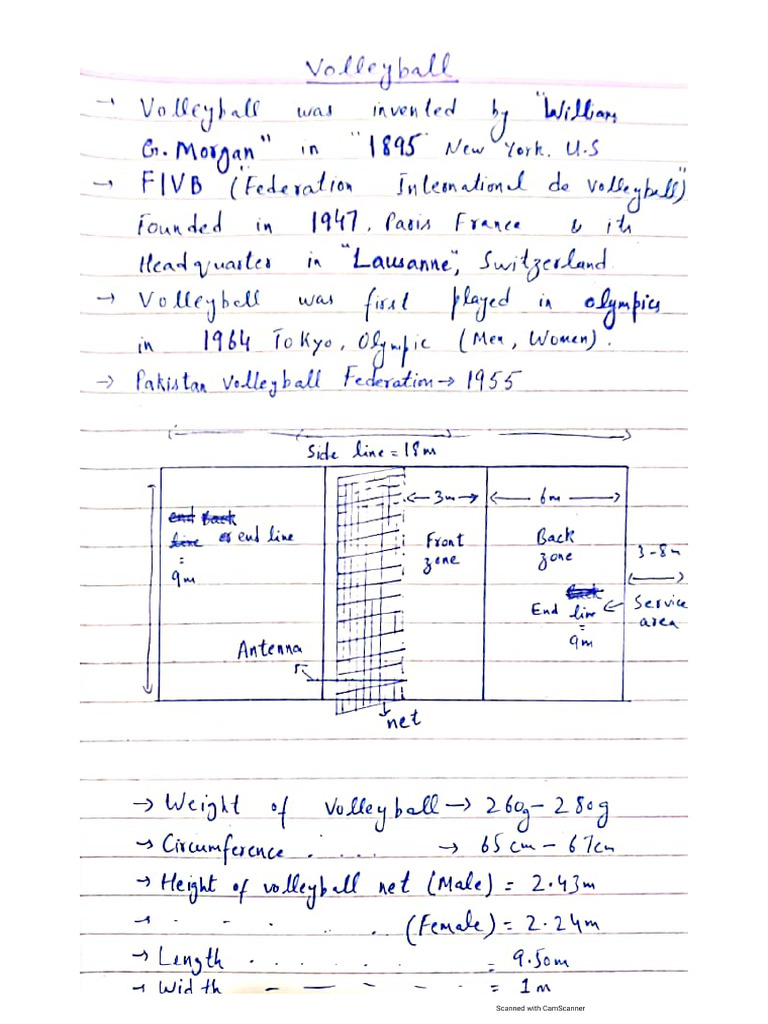 Volleyball
→ Volleyball was invented by "William
G. Morgan" in "1895" New York. U.S
→ FIVB (Federation International de volleyball")
Founded in 1947, Paris France & its
Headquarter in "Lausanne", Switzerland
→ Volleyball was first played in olympics
in 1964 Tokyo, Olympic (Men, Women).
→ Pakistan Volleyball Federation → 1955
Side line = 18m
3m
6m
end Back
line or end line
=
9m
Front
zone
Back
zone
3-8m
Back
End line
=
9m
Service
area
Antenna
net
→ Weight of Volleyball → 260g - 280g
→ Circumference . . . . . → 65 cm - 67cm
→ Height of volleyball net (Male) = 2.43m
→ . - . . . (Female) = 2.24m
→ Length . . . . . . = 9.50m
→ Width - - - - . = 1m
Scanned with CamScanner